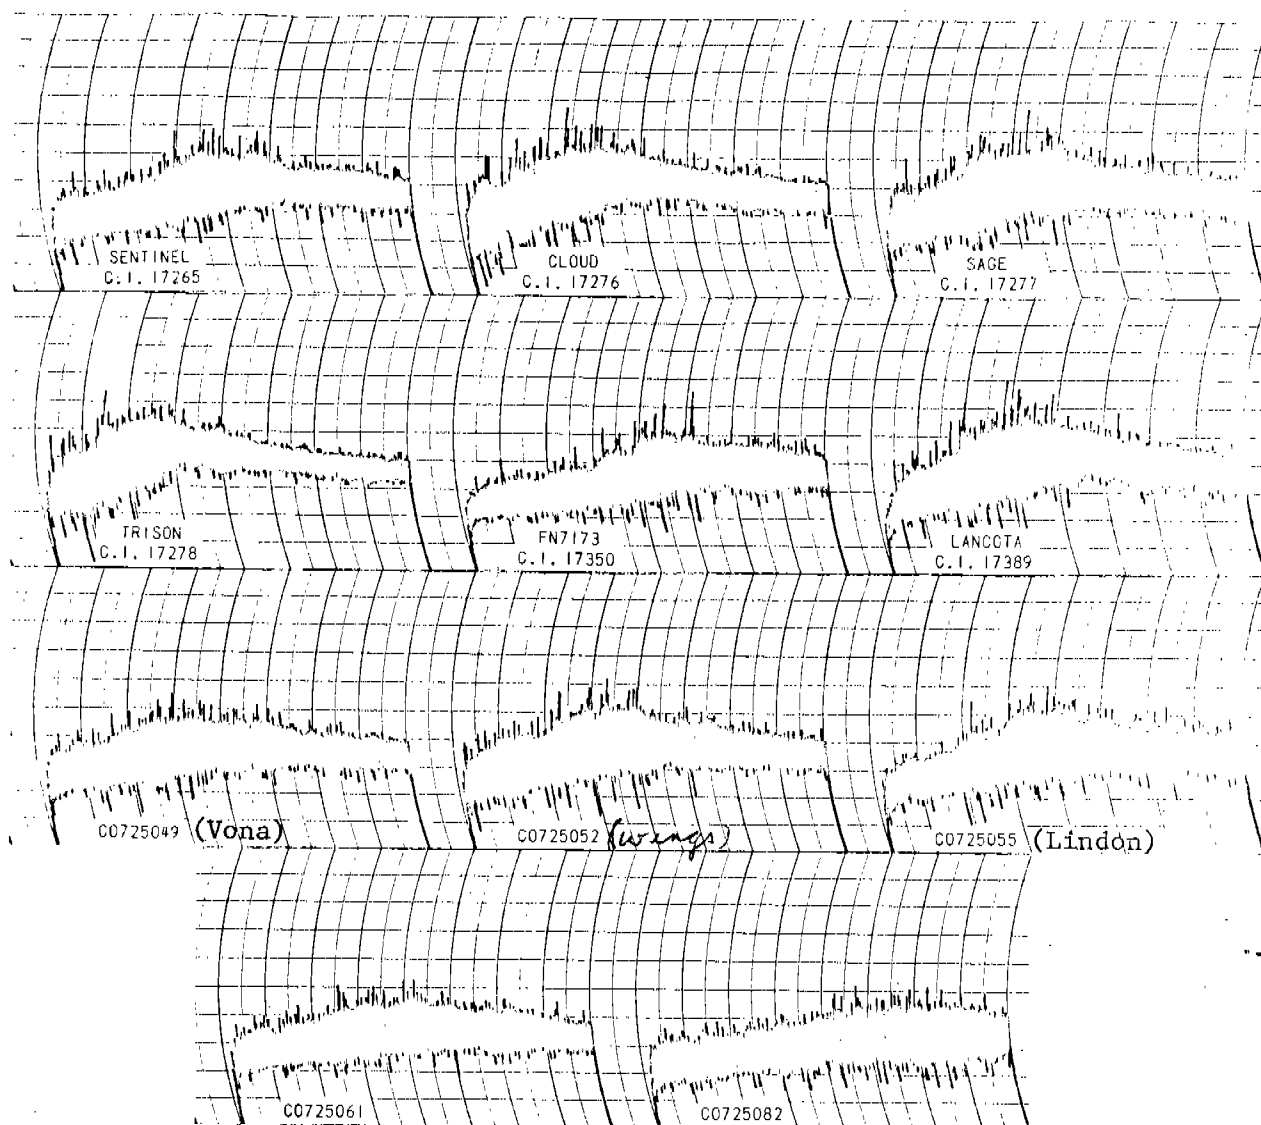 SENTINEL
C.I. 17265
CLOUD
C.I. 17276
SAGE
C.I. 17277
TRISON
C.I. 17278
FN7173
C.I. 17350
LANCOTA
C.I. 17389
CO725049 (Vona)
CO725052 (wings)
CO725055 (Lindon)
CO725061
CO725082